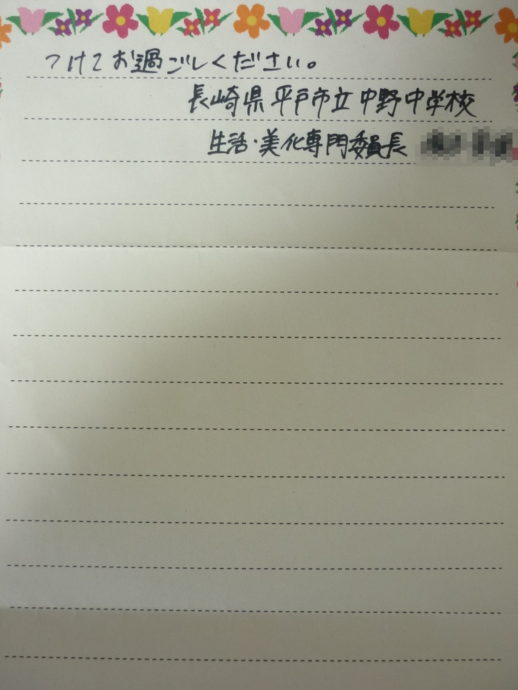 つけてお過ごしください。
長崎県平戸市立中野中学校
生活・美化専門委員長